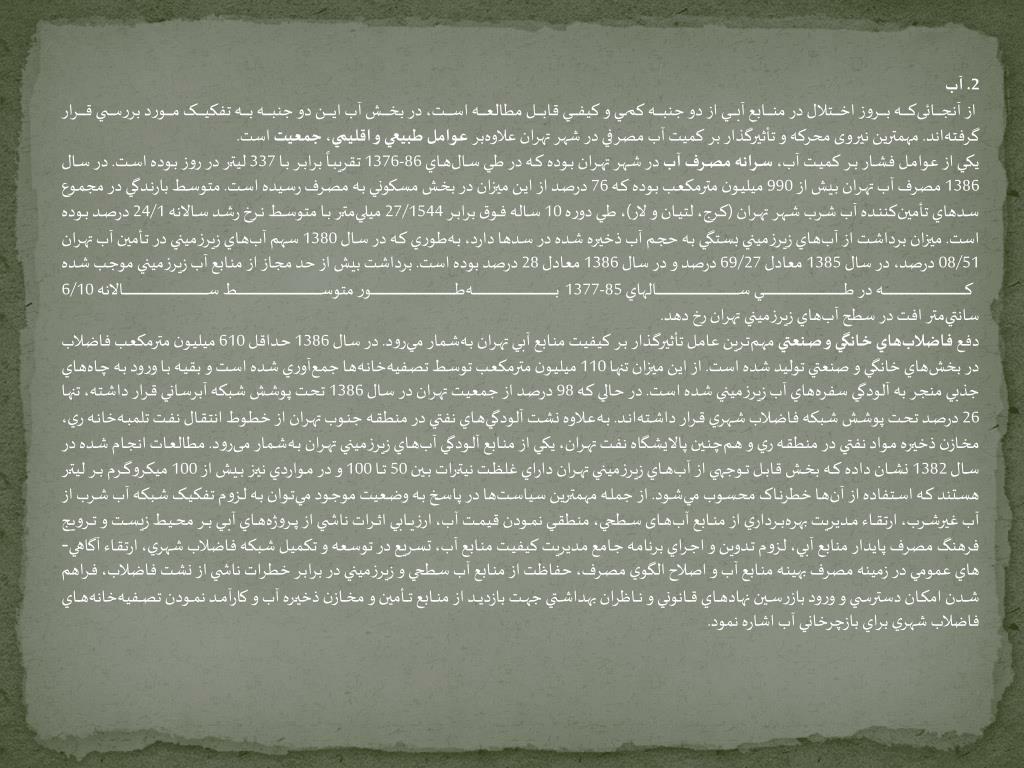 2. آب
از آنجائی‌که بروز اختلال در منابع آبي از دو جنبه کمي و کيفي قابل مطالعه است، در بخش آب اين دو جنبه به تفکيک مورد بررسي قرار
گرفته‌اند. مهمترين نيروی محرکه و تأثيرگذار بر کميت آب مصرفي در شهر تهران علاوه‌بر عوامل طبيعي و اقليمي، جمعيت است.
يکي از عوامل فشار بر کميت آب، سرانه مصرف آب در شهر تهران بوده که در طي سال‌هاي 86-1376 تقريباً برابر با 337 ليتر در روز بوده است. در سال
1386 مصرف آب تهران بيش از 990 ميليون مترمکعب بوده که 76 درصد از اين ميزان در بخش مسکوني به مصرف رسيده است. متوسط بارندگي در مجموع
سدهاي تأمين‌کننده آب شرب شهر تهران (کرج، لتيان و لار)، طي دوره 10 ساله فوق برابر 27/1544 ميلي‌متر با متوسط نرخ رشد سالانه 24/1 درصد بوده
است. ميزان برداشت از آب‌هاي زيرزميني بستگي به حجم آب ذخيره شده در سدها دارد، به‌طوري که در سال 1380 سهم آب‌هاي زيرزميني در تأمين آب تهران
08/51 درصد، در سال 1385 معادل 69/27 درصد و در سال 1386 معادل 28 درصد بوده است. برداشت بيش از حد مجاز از منابع آب زيرزميني موجب شده
که در طي سالهاي 85-1377 به‌طور متوسط سالانه 6/10
سانتي‌متر افت در سطح آب‌هاي زيرزميني تهران رخ دهد.
دفع فاضلاب‌هاي خانگي و صنعتي مهم‌ترين عامل تأثيرگذار بر کيفيت منابع آبي تهران به‌شمار مي‌رود. در سال 1386 حداقل 610 ميليون مترمکعب فاضلاب
در بخش‌هاي خانگي و صنعتي توليد شده است. از اين ميزان تنها 110 ميليون مترمکعب توسط تصفيه‌خانه‌ها جمع‌آوري شده است و بقيه با ورود به چاه‌هاي
جذبي منجر به آلودگي سفره‌هاي آب زيرزميني شده است. در حالي که 98 درصد از جمعيت تهران در سال 1386 تحت پوشش شبکه آبرساني قرار داشته، تنها
26 درصد تحت پوشش شبکه فاضلاب شهري قرار داشته‌اند. به‌علاوه نشت آلودگي‌هاي نفتي در منطقه جنوب تهران از خطوط انتقال نفت تلمبه‌خانه ري،
مخازن ذخيره مواد نفتي در منطقه ري و هم‌چنين پالايشگاه نفت تهران، يکي از منابع آلودگي آب‌هاي زيرزميني تهران به‌شمار مي‌رود. مطالعات انجام شده در
سال 1382 نشان داده که بخش قابل توجهي از آب‌هاي زيرزميني تهران داراي غلظت نيترات بين 50 تا 100 و در مواردي نيز بيش از 100 ميکروگرم بر ليتر
هستند که استفاده از آن‌ها خطرناک محسوب مي‌شود. از جمله مهمترين سياست‌ها در پاسخ به وضعيت موجود مي‌توان به لزوم تفکيک شبکه آب شرب از
آب غيرشرب، ارتقاء مديريت بهره‌برداري از منابع آب‌هاى سطحي، منطقي نمودن قيمت آب، ارزيابي اثرات ناشي از پروژه‌هاي آبي بر محيط زيست و ترويج
فرهنگ مصرف پايدار منابع آبي، لزوم تدوين و اجراي برنامه جامع مديريت کيفيت منابع آب، تسريع در توسعه و تکميل شبکه فاضلاب شهري، ارتقاء آگاهي-
هاي عمومي در زمينه مصرف بهينه منابع آب و اصلاح الگوي مصرف، حفاظت از منابع آب سطحي و زيرزميني در برابر خطرات ناشي از نشت فاضلاب، فراهم
شدن امکان دسترسي و ورود بازرسين نهادهاي قانوني و ناظران بهداشتي جهت بازديد از منابع تأمين و مخازن ذخيره آب و کارآمد نمودن تصفيه‌خانه‌هاي
فاضلاب شهري براي بازچرخاني آب اشاره نمود.